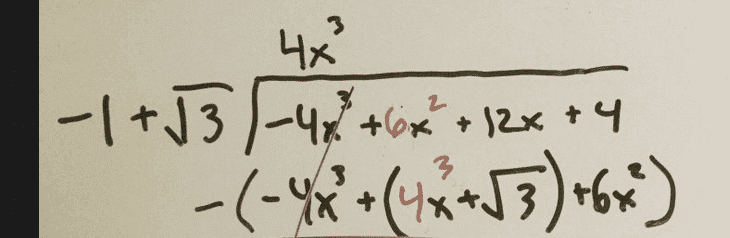 4x³
-1+√3 ⟌ -4x³ + 6x² + 12x + 4
-(-4x³ + (4x³ + √3) + 6x²)